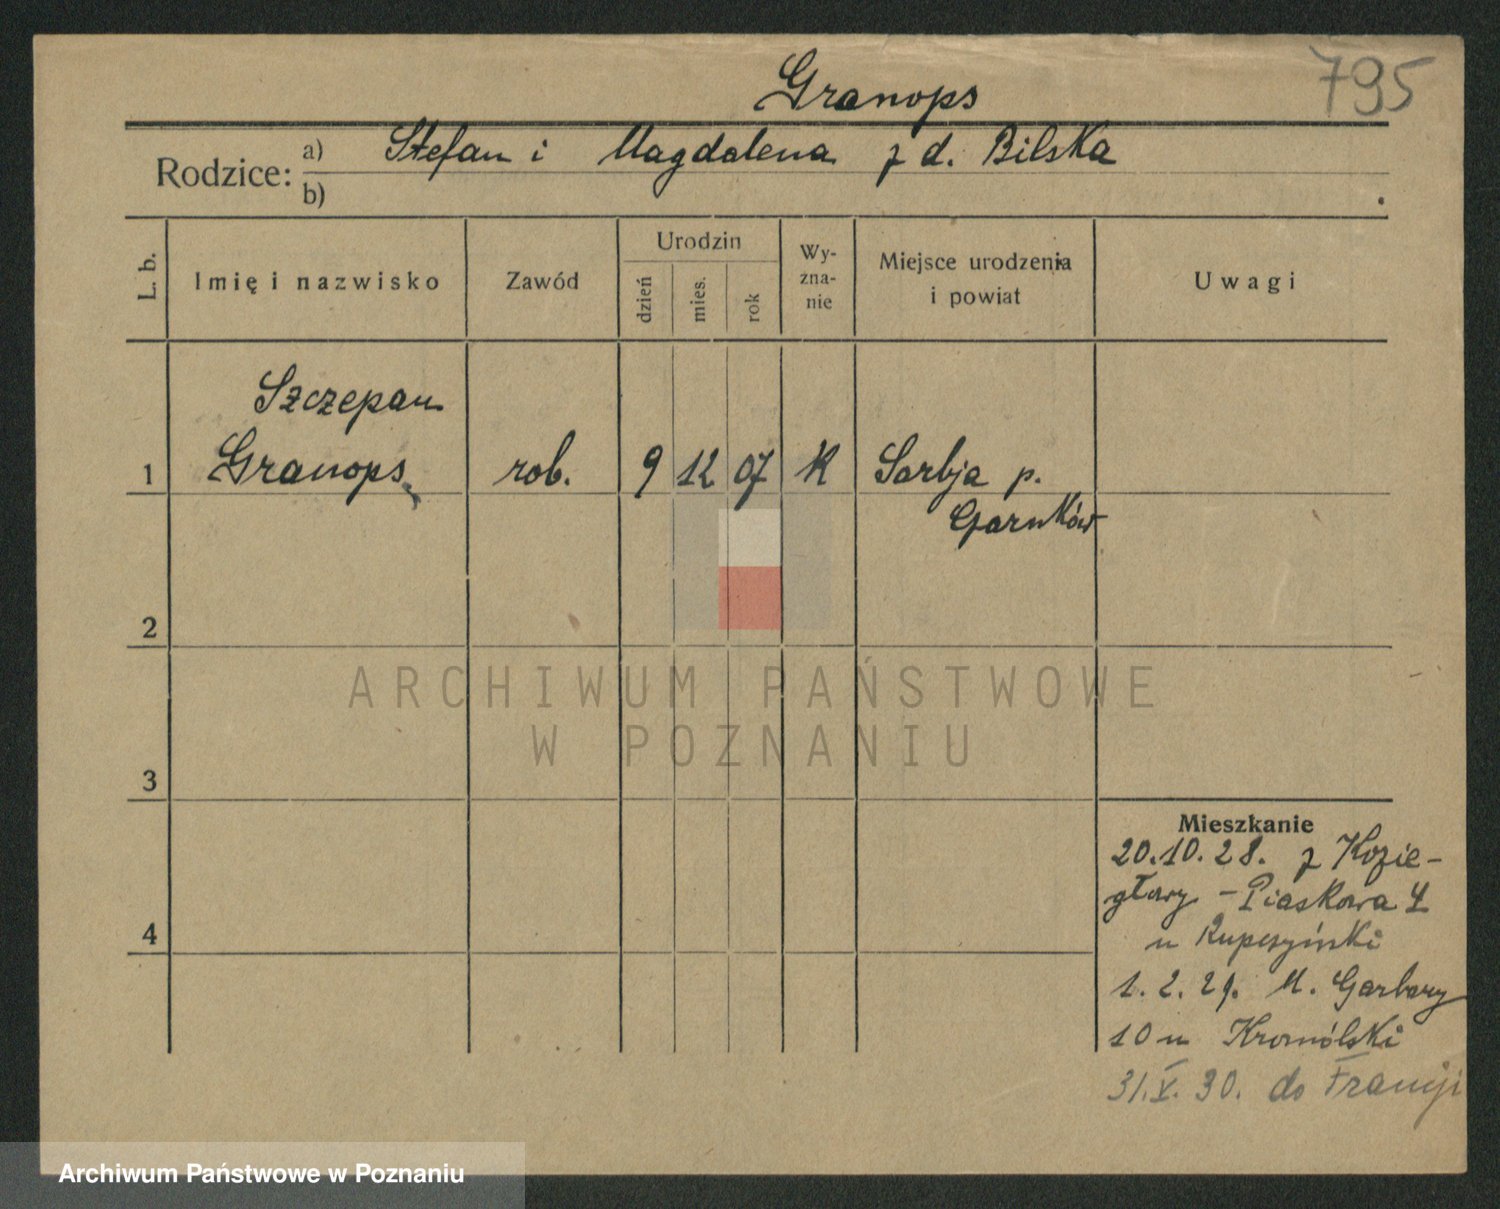 795
Granops
Rodzice: a) Stefan i Magdalena z d. Bilska
b)
L. b.
Imię i nazwisko
Zawód
Urodzin
dzień
mies.
rok
Wy-
zna-
nie
Miejsce urodzenia
i powiat
Uwagi
Szczepan
1 Granops rob. 9 12 07 K Sarbja p.
Czarnków
2
3
4
Mieszkanie
20.10.28. z Kozie-
głowy - Piaskowa 4
u
1.2.29. M. Garbary
10 u
31.X.30. do Francji
ARCHIWUM PAŃSTWOWE
W POZNANIU
Archiwum Państwowe w Poznaniu